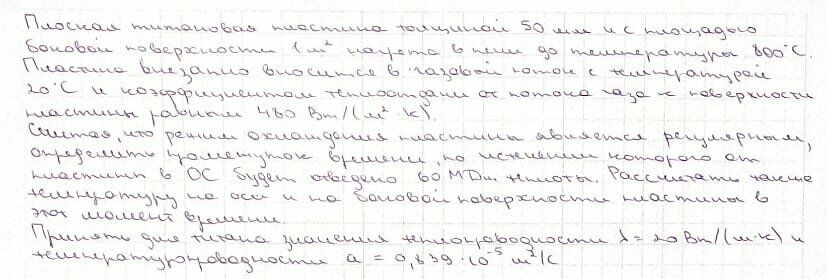 Плоская титановая пластина толщиной 50 мм и с площадью
боковой поверхности 1 м² нагрета в печи до температуры 800°С.
Пластина внезапно вносится в газовой поток с температурой
20°С и коэффициентом теплоотдачи от потока газа к поверхности
пластины равным 480 Вт/(м²·К).
Считая, что режим охлаждения пластины является регулярным,
определить промежуток времени, по истечении которого от
пластины в ОС будет отведено 60 МДж теплоты. Рассчитать также
температуру на оси и на боковой поверхности пластины в
этот момент времени.
Принять для титана значения теплопроводности λ = 20 Вт/(м·К) и
температуропроводности a = 0,839·10⁻⁵ м²/с